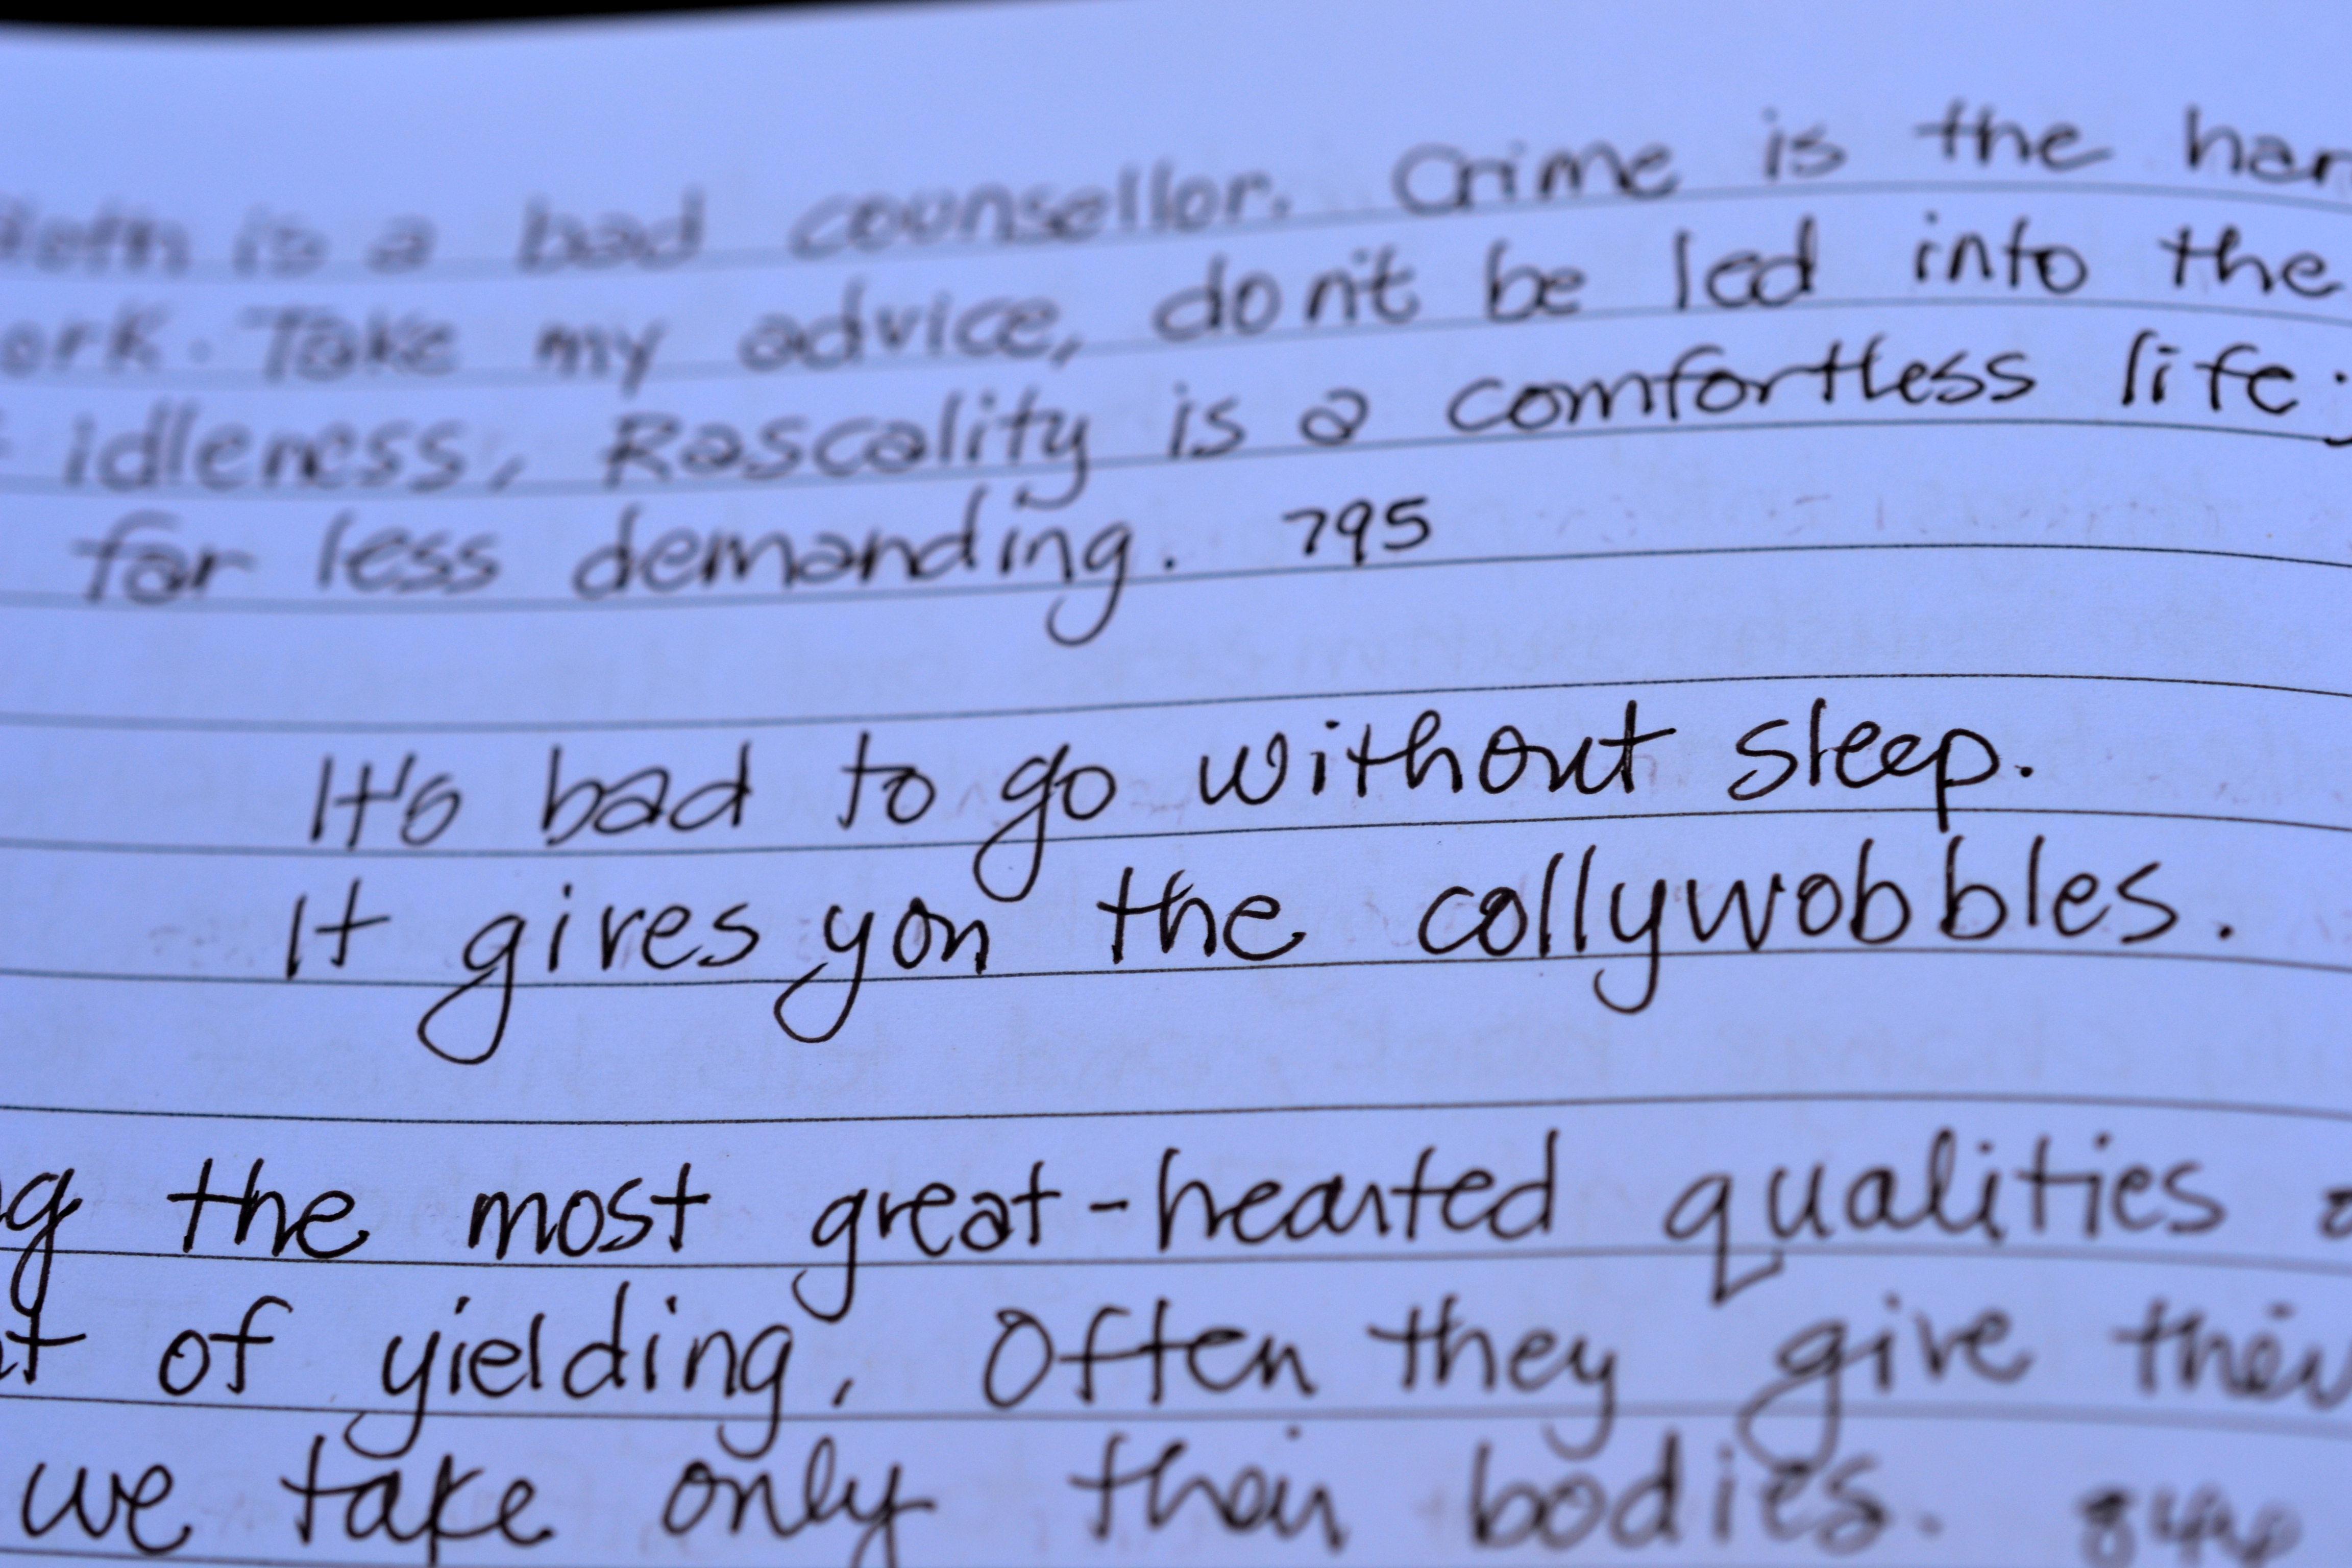 is a bad counsellor. Crime is the har
ork. Take my advice, don't be led into the
idleness, Rascality is a comfortless life;
far less demanding. 795
It's bad to go without sleep.
It gives you the collywobbles.
g the most great-hearted qualities
t of yielding. Often they give their
we take only their bodies.